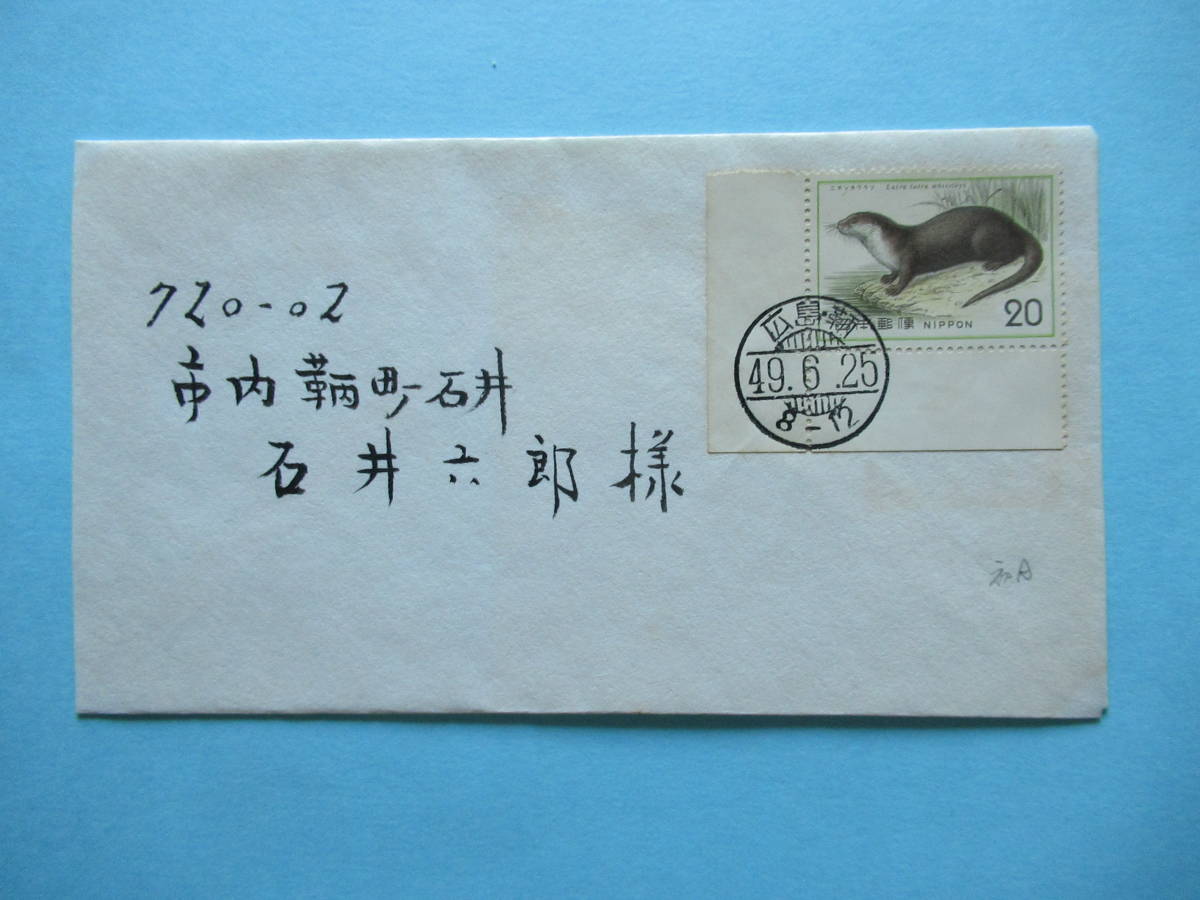 ニホンカワウソ Lutra lutra whiteleyi
日本郵便 NIPPON 20
広島・鞆
49.6.25
8-12
720-02
市内鞆町石井
石井六郎様
初日